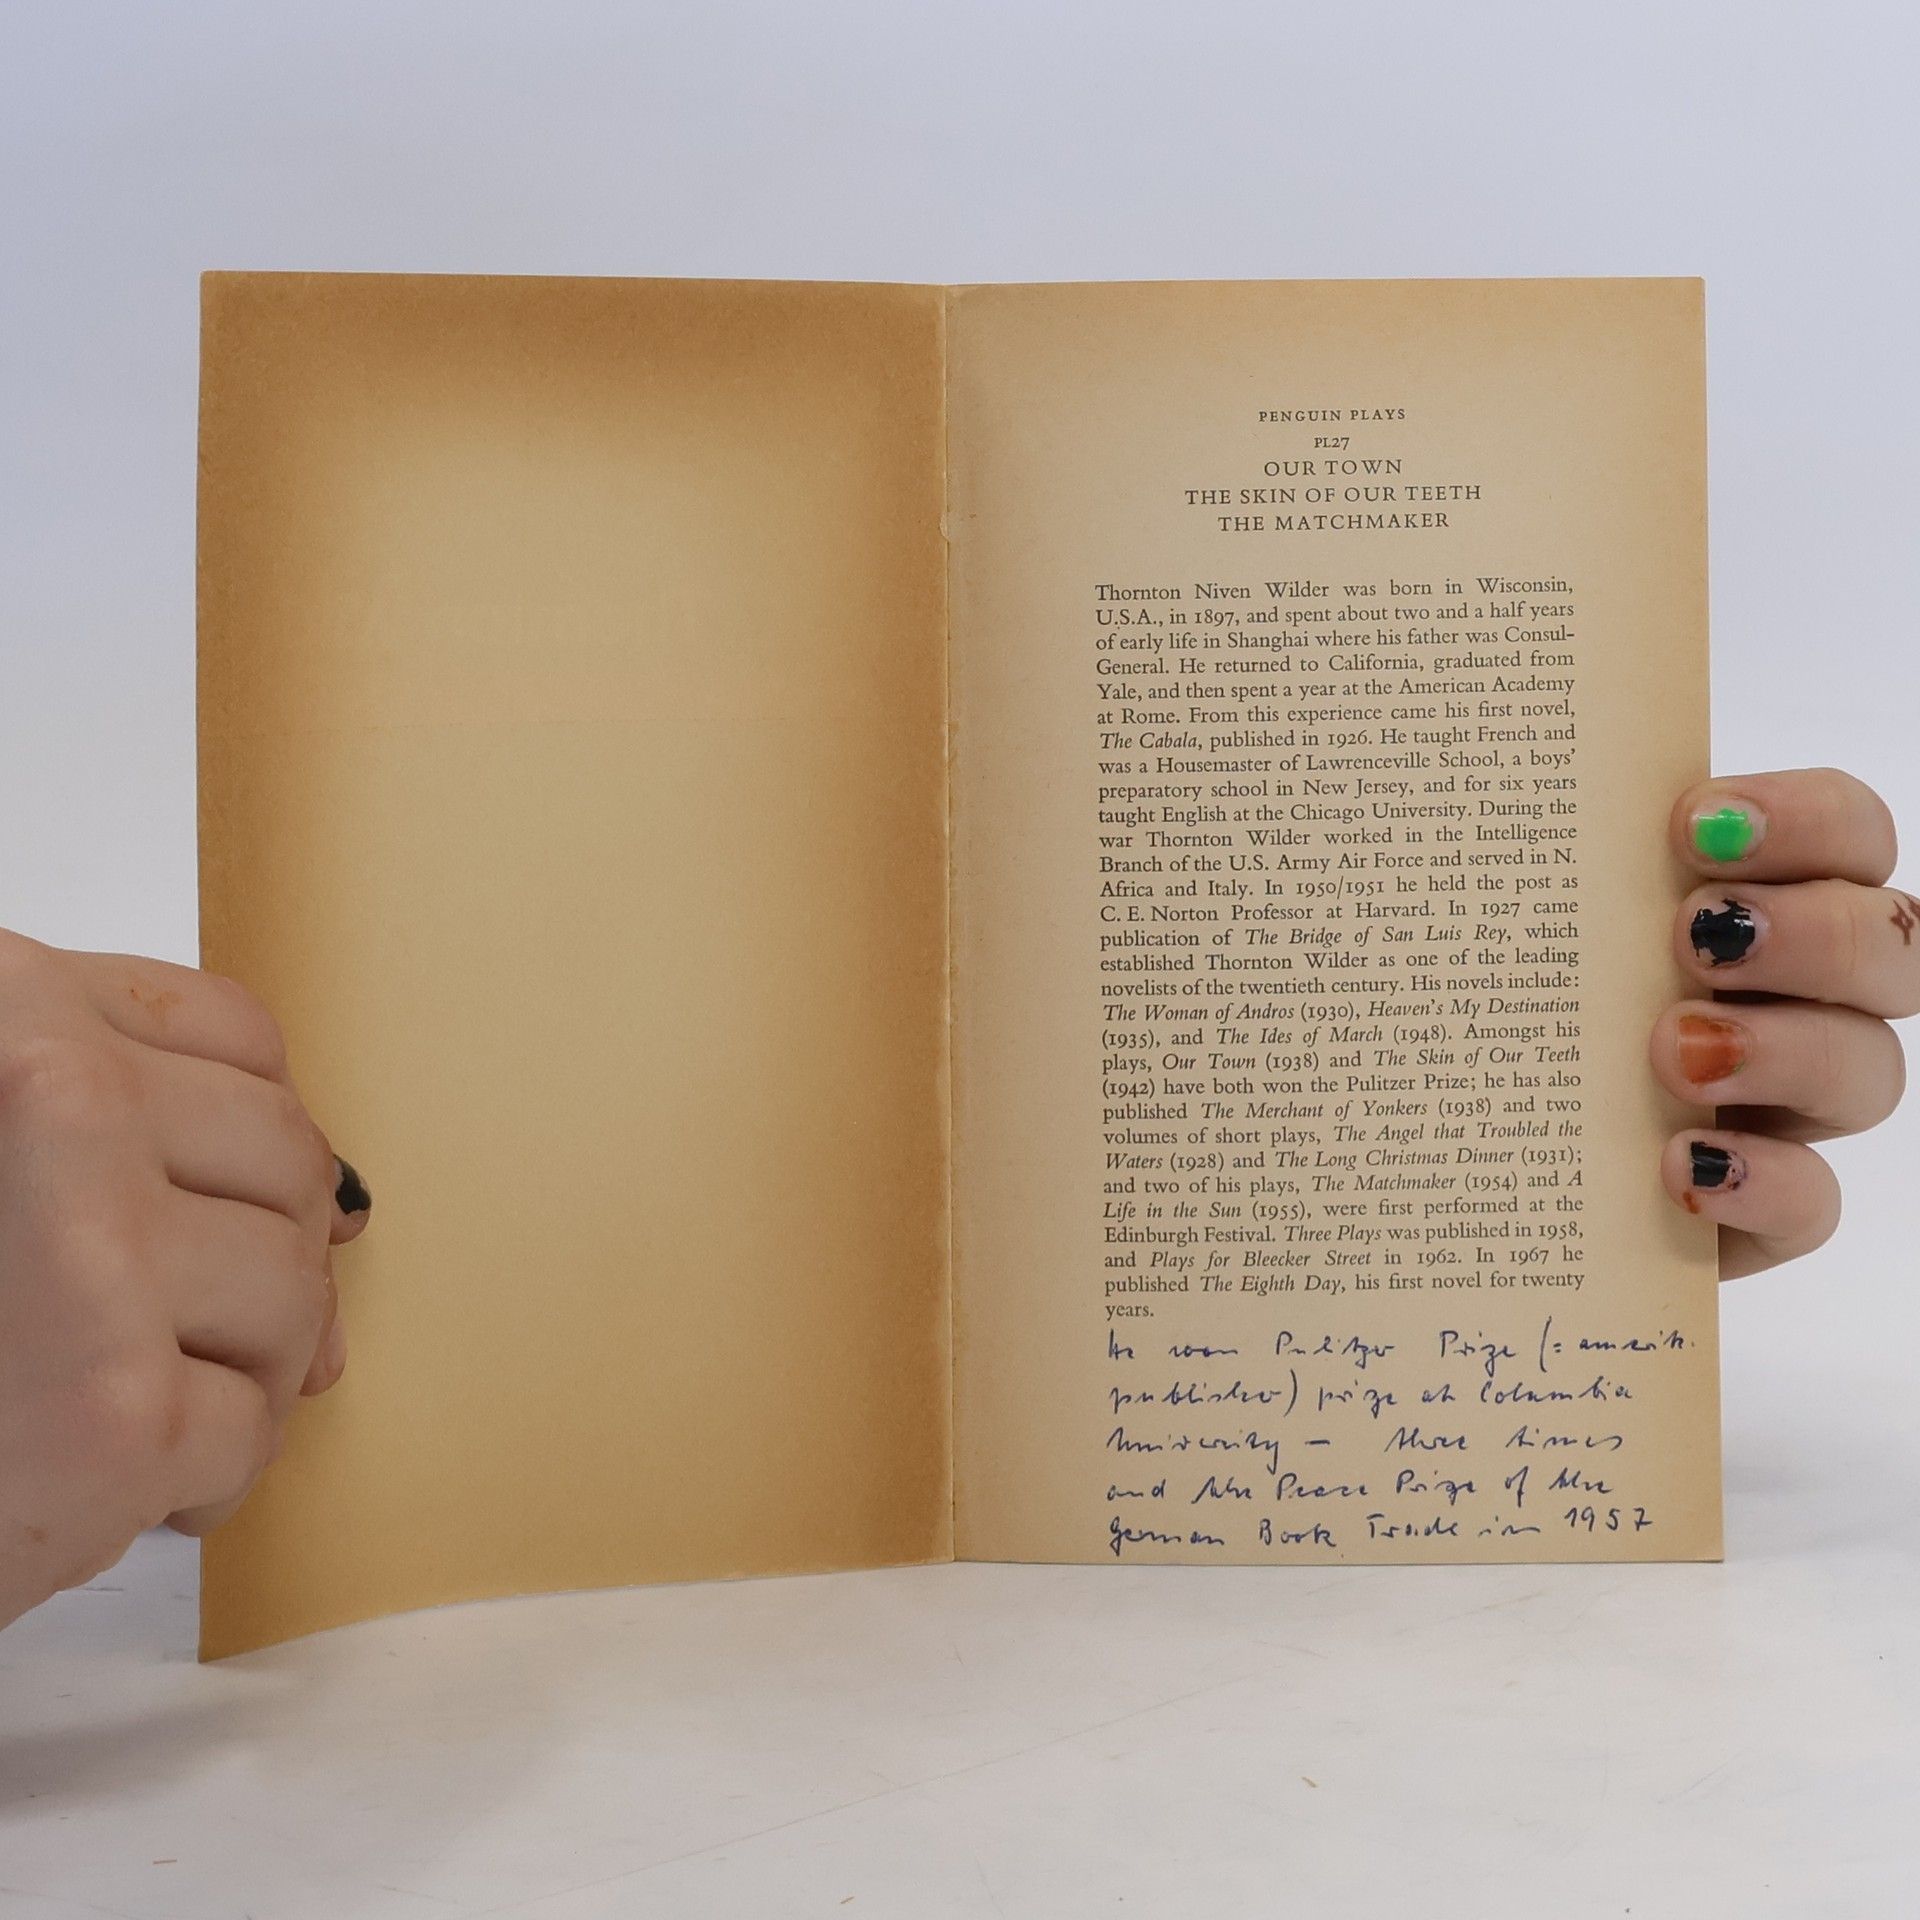 PENGUIN PLAYS
PL27
OUR TOWN
THE SKIN OF OUR TEETH
THE MATCHMAKER
Thornton Niven Wilder was born in Wisconsin,
U.S.A., in 1897, and spent about two and a half years
of early life in Shanghai where his father was Consul-
General. He returned to California, graduated from
Yale, and then spent a year at the American Academy
at Rome. From this experience came his first novel,
The Cabala, published in 1926. He taught French and
was a Housemaster of Lawrenceville School, a boys’
preparatory school in New Jersey, and for six years
taught English at the Chicago University. During the
war Thornton Wilder worked in the Intelligence
Branch of the U.S. Army Air Force and served in N.
Africa and Italy. In 1950/1951 he held the post as
C. E. Norton Professor at Harvard. In 1927 came
publication of The Bridge of San Luis Rey, which
established Thornton Wilder as one of the leading
novelists of the twentieth century. His novels include:
The Woman of Andros (1930), Heaven’s My Destination
(1935), and The Ides of March (1948). Amongst his
plays, Our Town (1938) and The Skin of Our Teeth
(1942) have both won the Pulitzer Prize; he has also
published The Merchant of Yonkers (1938) and two
volumes of short plays, The Angel that Troubled the
Waters (1928) and The Long Christmas Dinner (1931);
and two of his plays, The Matchmaker (1954) and A
Life in the Sun (1955), were first performed at the
Edinburgh Festival. Three Plays was published in 1958,
and Plays for Bleecker Street in 1962. In 1967 he
published The Eighth Day, his first novel for twenty
years.
He won Pulitzer Prize (= amerik.
publisher) prize at Columbia
University – three times
and the Peace Prize of the
German Book Trade in 1957